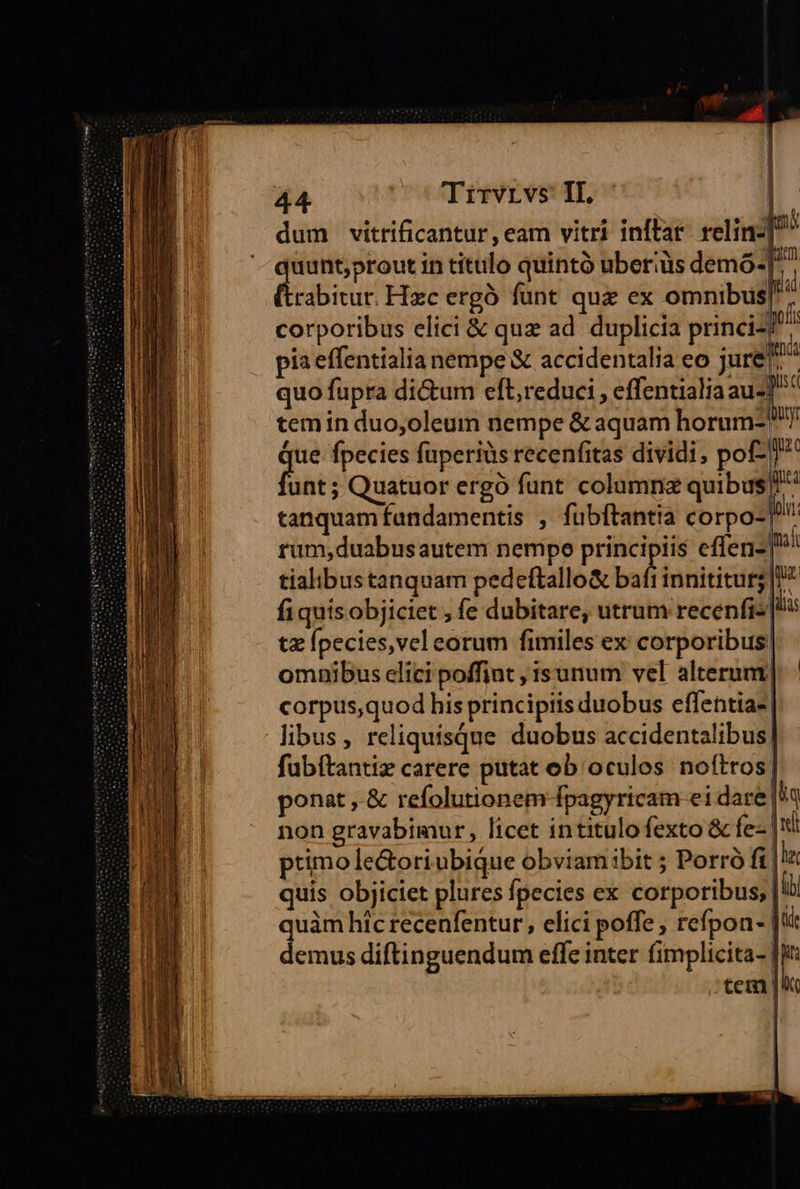 44 Titvlvs II.
dum vitrificantur, eam vitri inſtar relin-
quunt, prout in titulo quintò uberiùs demõ-
ſtrabitur. Hæc ergò ſunt quæ ex omnibus
corporibus elici & quæ ad duplicia princi-
pia eſſentialia nempe & accidentalia eo jure
quo ſupra dictum eſt, reduci, eſſentialia au-
tem in duo, oleum nempe & aquam horum-
q́ue ſpecies ſuperiùs recenſitas dividi, poſ-
ſunt; Quatuor ergò ſunt columnæ quibus
tanquam fundamentis, ſubſtantia corpo-
rum, duabus autem nempe principiis eſſen-
tialibus tanquam pedeſtallo & baſi innititur;
ſi quis objiciet, ſe dubitare, utrum recenſi-
tæ ſpecies, vel eorum ſimiles ex corporibus
omnibus elici poſſint, is unum vel alterum
corpus, quod his principiis duobus eſſentia-
libus, reliquisq́ue duobus accidentalibus
ſubſtantiæ carere putat ob oculos noſtros
ponat, & reſolutionem ſpagyricam ei dare
non gravabimur, licet in titulo ſexto & ſe-
ptimo lectori ubiq́ue obviam ibit; Porrò ſi
quis objiciet plures ſpecies ex corporibus,
quàm hîc recenſentur, elici poſſe, reſpon-
demus diſtinguendum eſſe inter ſimplicita-
tem